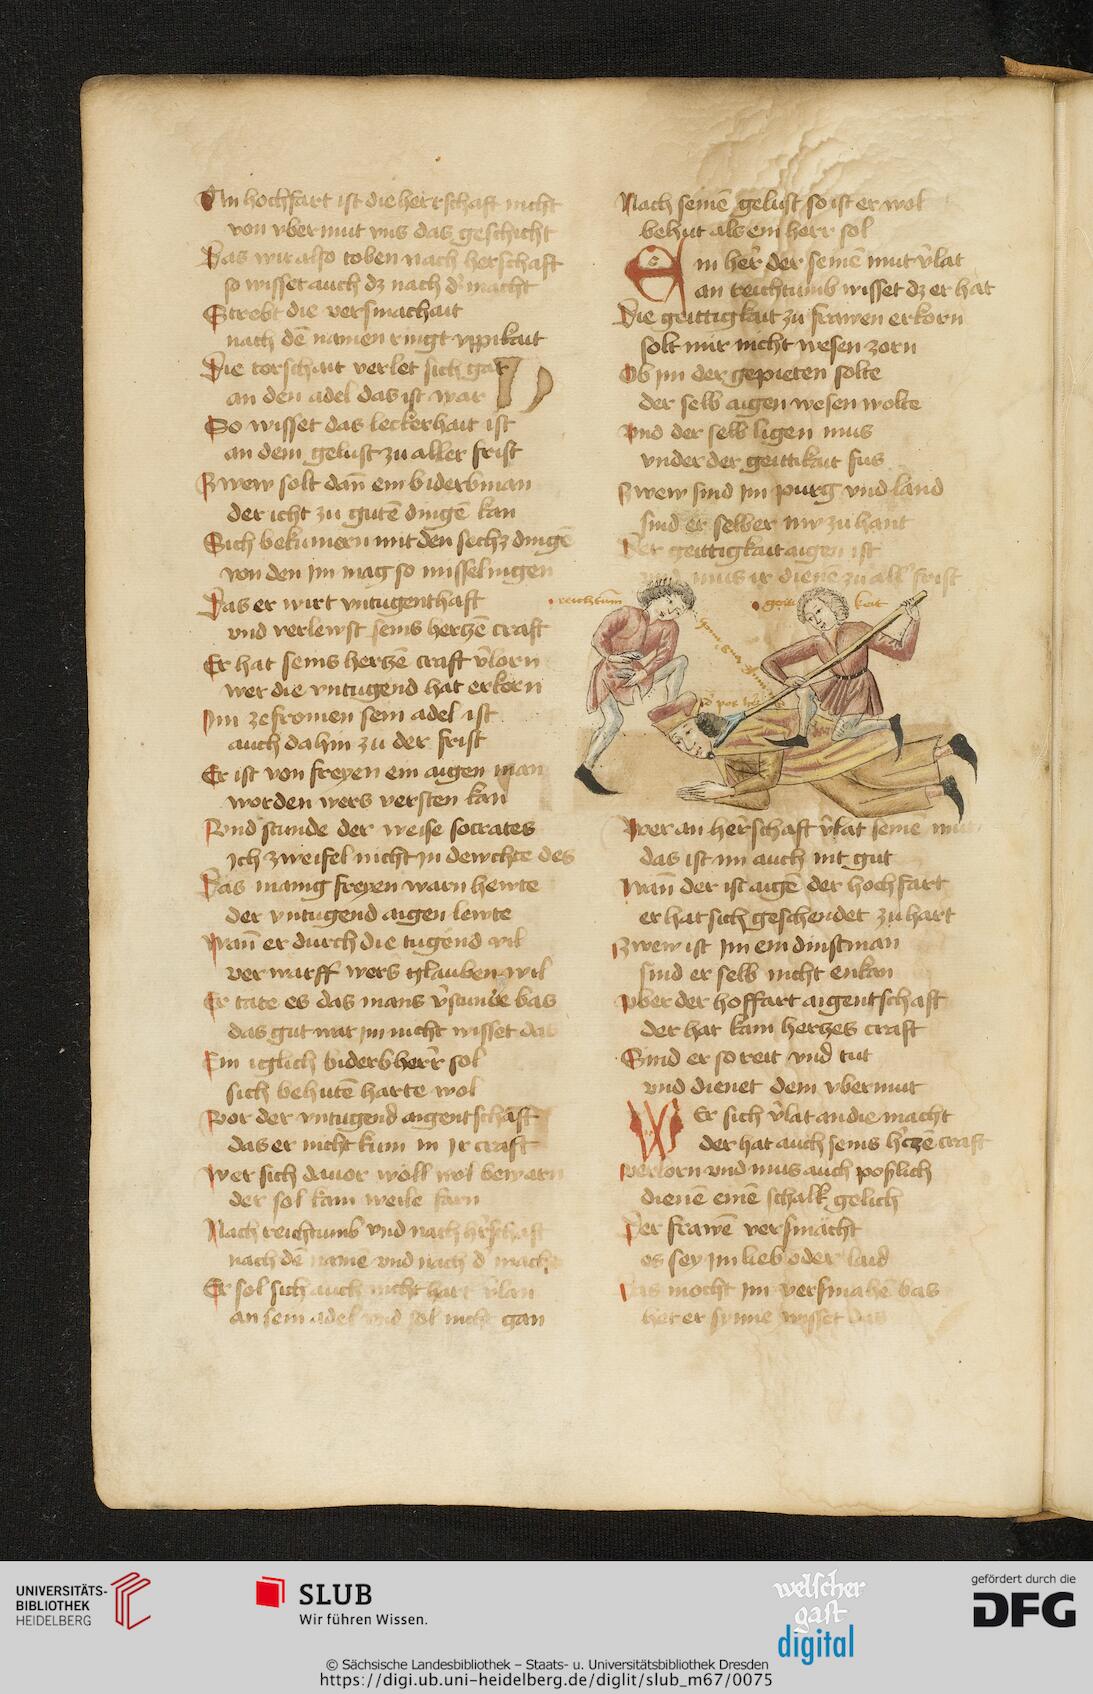 An hochfart ist die herrschaft nicht
von vbermut vns das geschicht
Das wir also toben nach herschaft
so wisset auch dz nach d' macht
Strebt die versmachait
nach dē namen ringt vppikait
Die torschait verlet sich gar
an den adel das ist war
So wisset das leckerhait ist
an dem gelust zu aller frist
Zwew solt dan̄ ein biderbman
der icht zu gutē dingē kan
Sich bekumern mit den sechz dingē
von den im mag so misselingen
Das er wirt vntugenthaft
vnd verlewst seins hertzē craft
Er hat seins hertzē craft v̄lorn
wer die vntugend hat erkorn
Im zefromen sein adel ist
auch dahin zu der frist
Er ist von freyen ein aigen man
worden wers versten kan
Vnd stunde der weise socrates
Ich zweifel nicht in dewchte des
Das manig freyen warn hewte
der vntugend aigen lewte
Wan̄ er durch die tugend wil
verwarff wers glauben wil
Er tate es das mans v̄stunde bas
das gut war im nicht wisset das
Ein iglich biderbherr sol
sich behutē harte wol
Vor der vntugend aigentschaft
das er nicht kum in ir craft
Wer sich dauor wöll wol bewarn
der sol kain weile farn
Nach reichtumb vnd nach h'rschaft
nach dē namē vnd nach d' macht
Er sol sich auch nicht hart v̄lan
an sein adel vnd sol nicht gan
Nach seinē gelust so ist er wol
behut als ein herr sol
Ein her' der seinē mut v̄lat
an reichtumb wisset dz er hat
Die geittigkait zu frawen erkorn
solt mir nicht wesen zorn
Ob im der gepieten solte
der selb aigen wesen wolte
Vnd der selb ligen mus
vnder der geittikait fus
Zwew sind im purg vnd land
sind er selber nw zu hant
Der geittigkait aigen ist
vnd mus ir dienē zu all' frist
reichtum
geitt keit
Wer an her'schaft v̄lat seinē mut
das ist im auch nit gut
Wan̄ der ist aigē der hochfart
er hat sich geschendet zu hart
Zwew ist im ein dinstman
sind er selb nicht enkan
Vber der hoffart aigentschaft
der hat kain hertzes craft
Sind er so reit vnd tut
vnd dienet dem vbermut
Wer sich v̄lat an die macht
der hat auch seins h'czē craft
Verlorn vnd mus auch poszlich
dienē einē schalk gelich
Der frawē versmacht
es sey im lieb oder laid
Das mocht im versmahē bas
het er synne wisset das
UNIVERSITÄTS-
BIBLIOTHEK
HEIDELBERG
SLUB
Wir führen Wissen.
welscher
gast
digital
gefördert durch die
DFG
© Sächsische Landesbibliothek – Staats- u. Universitätsbibliothek Dresden
https://digi.ub.uni-heidelberg.de/diglit/slub_m67/0075